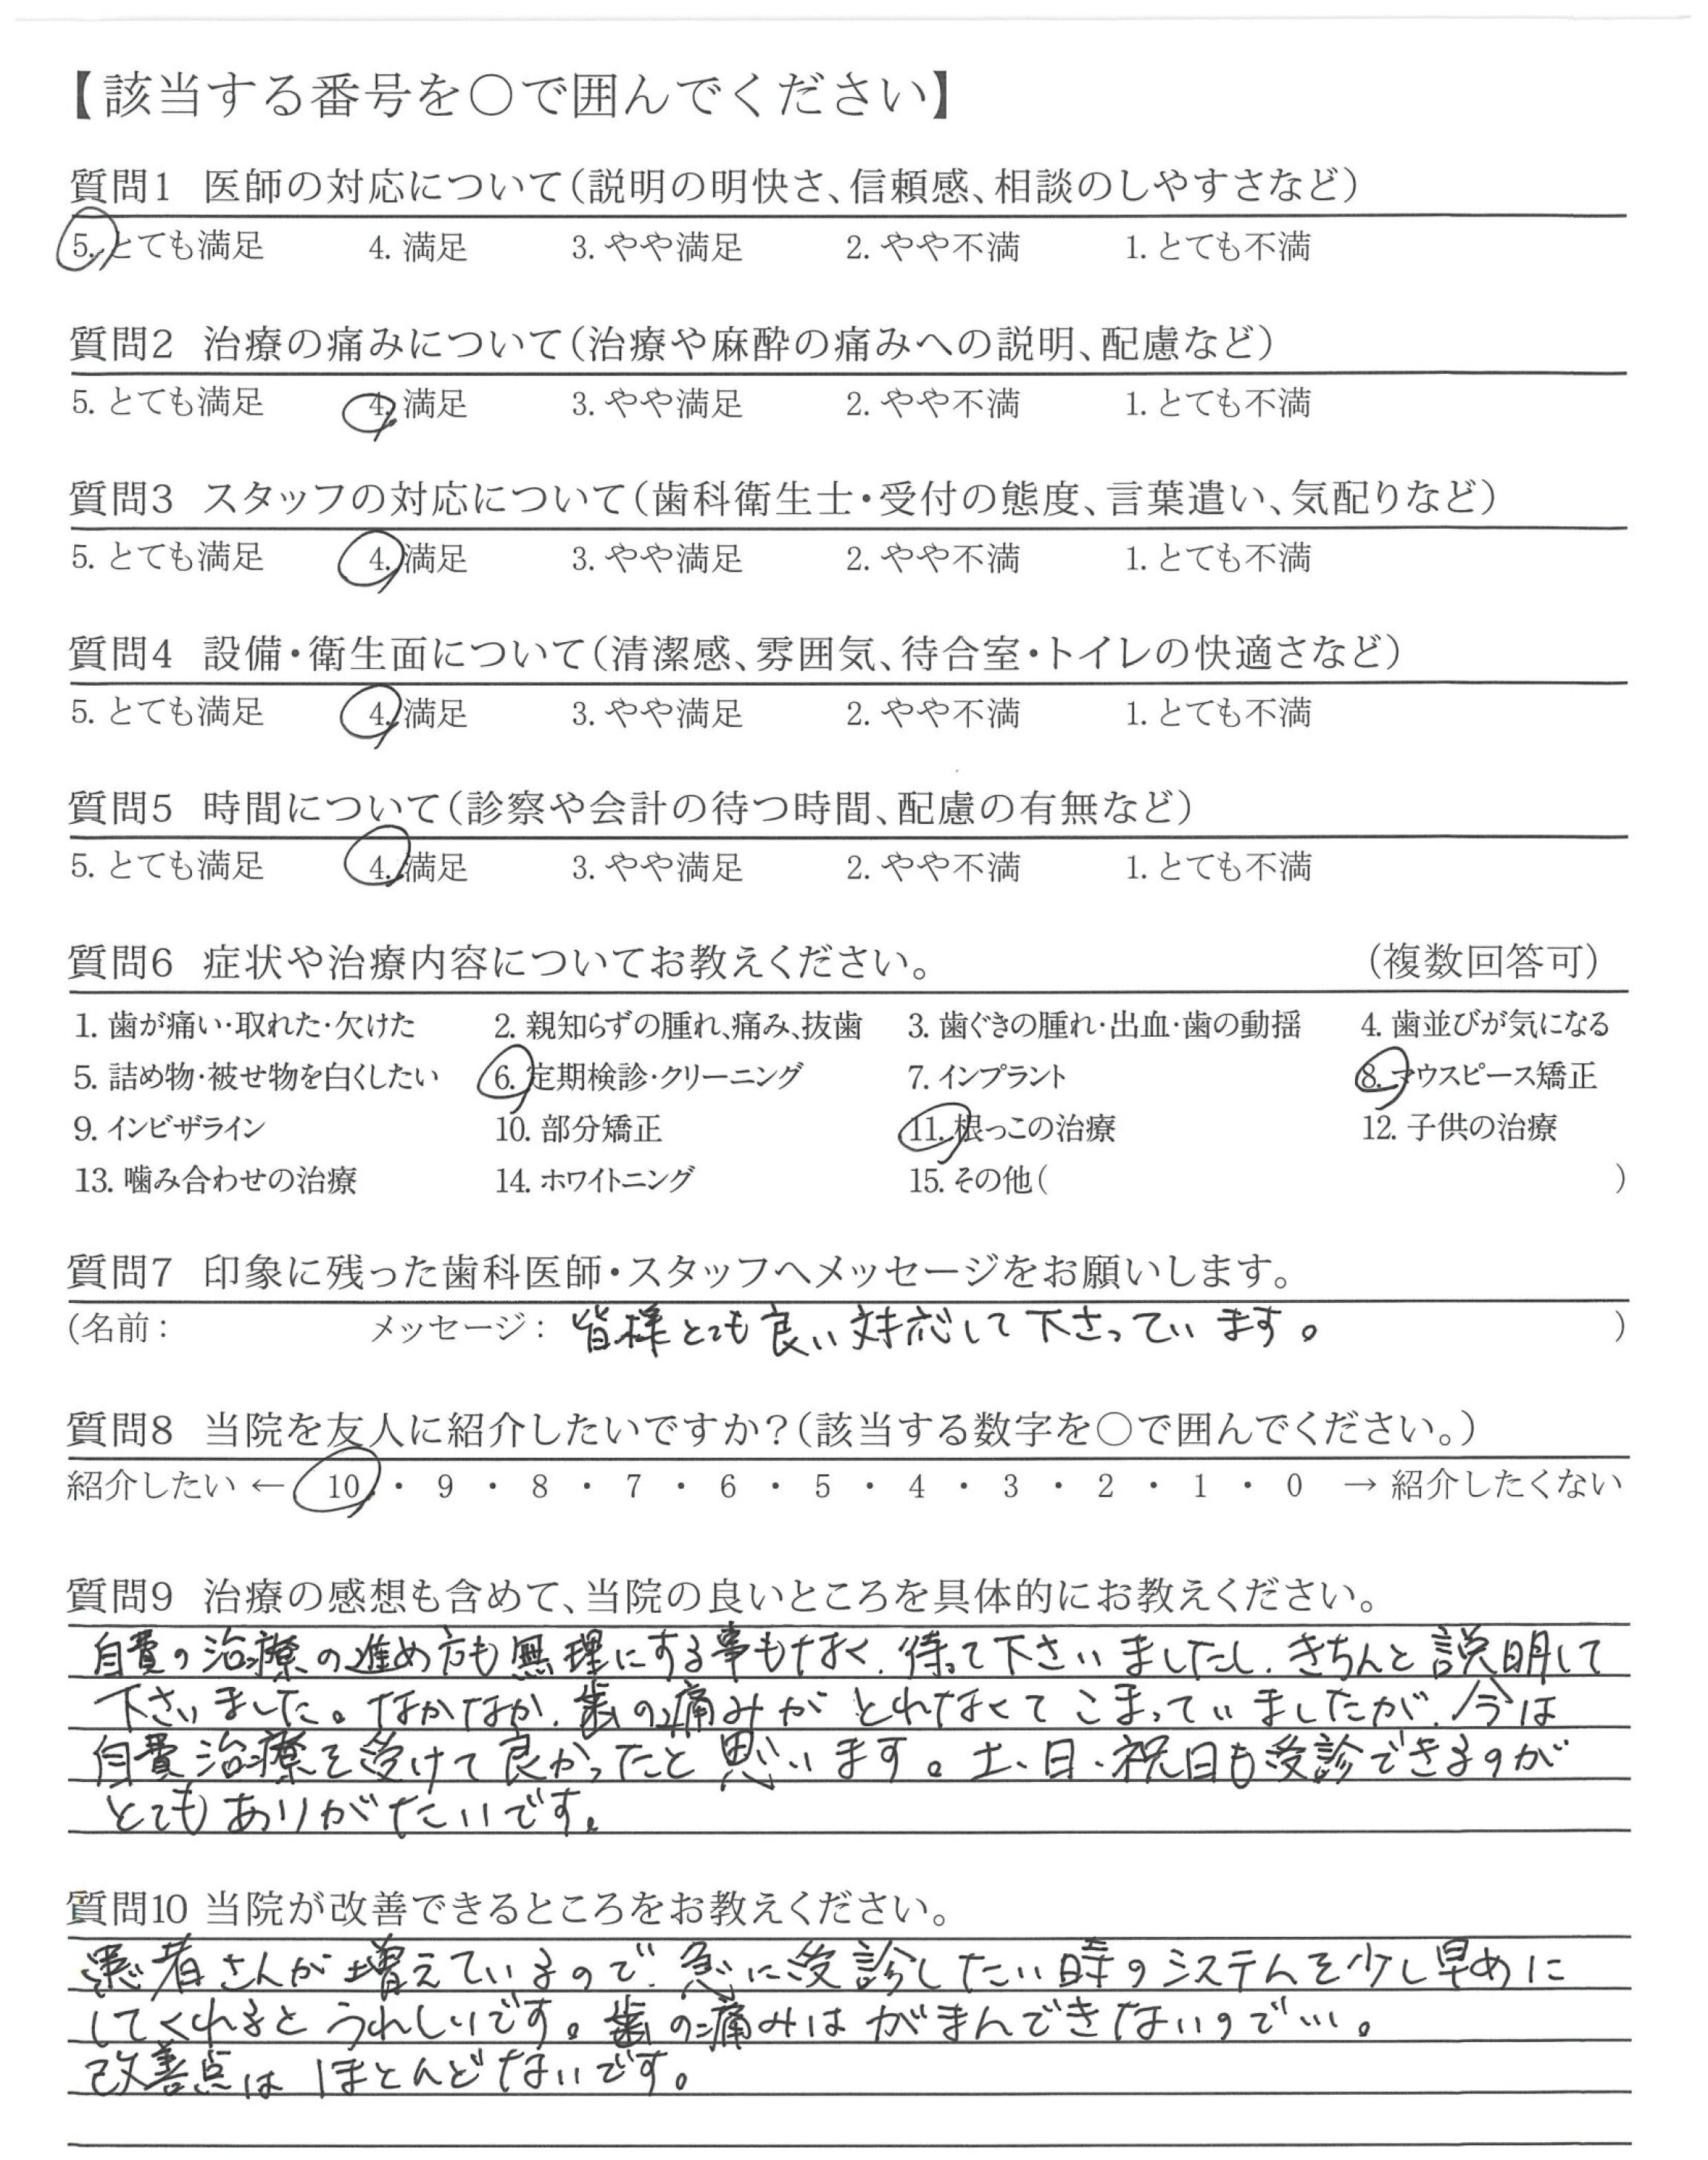 【該当する番号を○で囲んでください】
質問1 医師の対応について(説明の明快さ、信頼感、相談のしやすさなど)
5. とても満足 4. 満足 3. やや満足 2. やや不満 1. とても不満
質問2 治療の痛みについて(治療や麻酔の痛みへの説明、配慮など)
5. とても満足 4. 満足 3. やや満足 2. やや不満 1. とても不満
質問3 スタッフの対応について(歯科衛生士・受付の態度、言葉遣い、気配りなど)
5. とても満足 4. 満足 3. やや満足 2. やや不満 1. とても不満
質問4 設備・衛生面について(清潔感、雰囲気、待合室・トイレの快適さなど)
5. とても満足 4. 満足 3. やや満足 2. やや不満 1. とても不満
質問5 時間について(診察や会計の待つ時間、配慮の有無など)
5. とても満足 4. 満足 3. やや満足 2. やや不満 1. とても不満
質問6 症状や治療内容についてお教えください。 (複数回答可)
1. 歯が痛い・取れた・欠けた 2. 親知らずの腫れ、痛み、抜歯 3. 歯ぐきの腫れ・出血・歯の動揺 4. 歯並びが気になる
5. 詰め物・被せ物を白くしたい 6. 定期検診・クリーニング 7. インプラント 8. マウスピース矯正
9. インビザライン 10. 部分矯正 11. 根っこの治療 12. 子供の治療
13. 噛み合わせの治療 14. ホワイトニング 15. その他( )
質問7 印象に残った歯科医師・スタッフへメッセージをお願いします。
(名前: メッセージ: 皆様とても良い対応して下さっています。 )
質問8 当院を友人に紹介したいですか?(該当する数字を○で囲んでください。)
紹介したい ← 10 ・ 9 ・ 8 ・ 7 ・ 6 ・ 5 ・ 4 ・ 3 ・ 2 ・ 1 ・ 0 → 紹介したくない
質問9 治療の感想も含めて、当院の良いところを具体的にお教えください。
自費の治療の進め方も無理にする事もなく、待って下さいましたし、きちんと説明して
下さいました。なかなか、歯の痛みがとれなくてこまっていましたが、今は
自費治療を受けて良かったと思います。土、日、祝日も受診できるのが
とてもありがたいです。
質問10 当院が改善できるところをお教えください。
患者さんが増えているので、急に受診したい時のシステムを少し早めに
してくれるとうれしいです。歯の痛みはがまんできないので…。
改善点はほとんどないです。